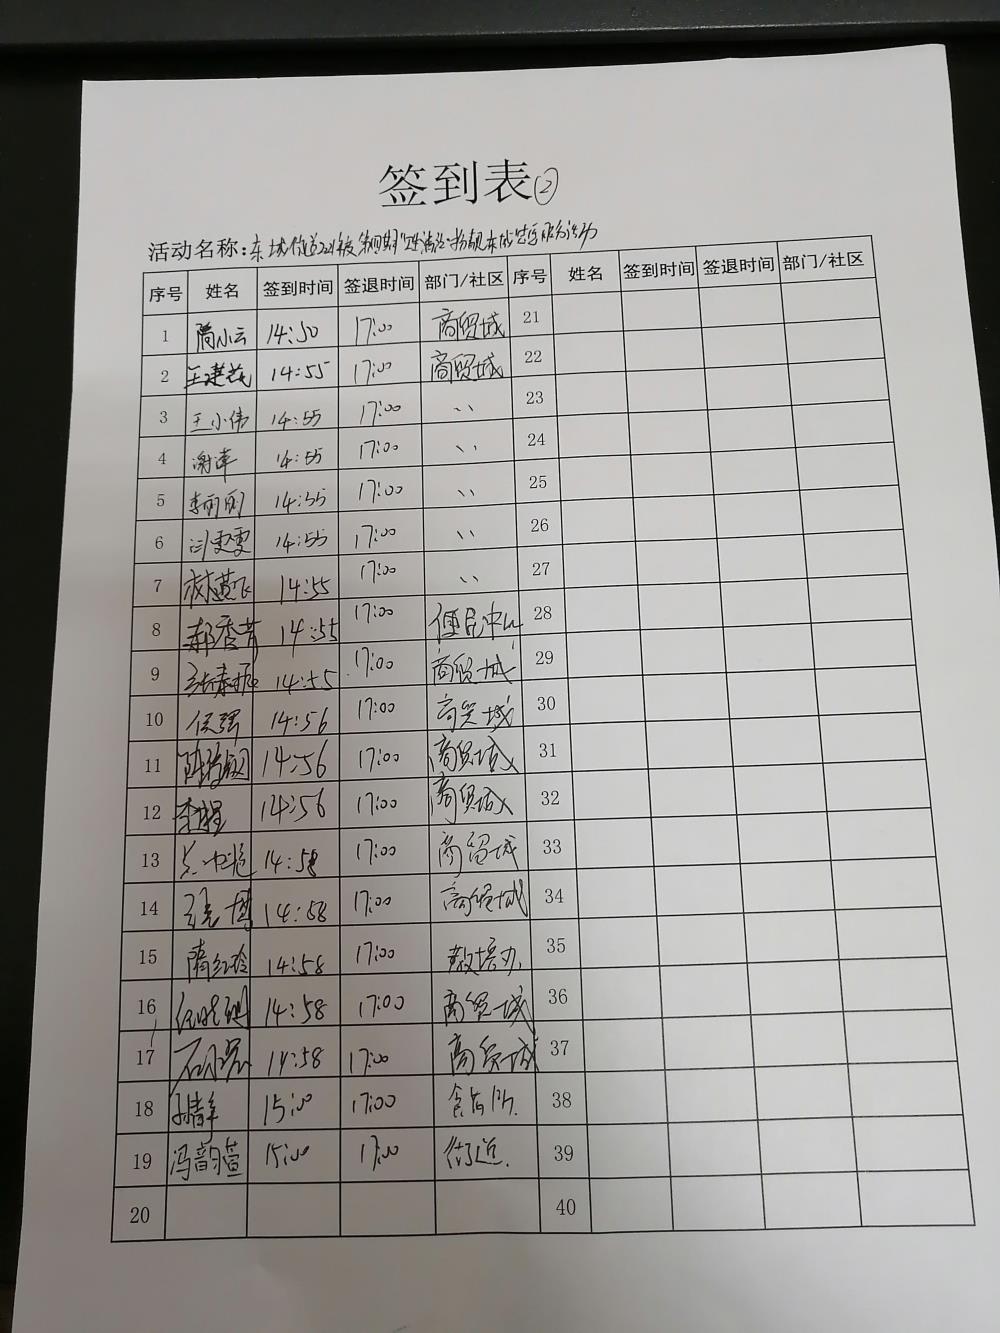 签到表②
活动名称:东城街道
序号 姓名 签到时间 签退时间 部门/社区 序号 姓名 签到时间 签退时间 部门/社区
1 隋小云 14:50 17:00 商贸城 21
2 王建花 14:55 17:00 商贸城 22
3 王小伟 14:55 17:00 〃 23
4 谢萍 14:55 17:00 〃 24
5 李丽丽 14:55 17:00 〃 25
6 闫雯雯 14:55 17:00 〃 26
7 14:55 17:00 〃 27
8 郝香芹 14:55 17:00 便民中心 28
9 14:55 17:00 商贸城 29
10 任强 14:56 17:00 商贸城 30
11 14:56 17:00 商贸城 31
12 14:56 17:00 商贸城 32
13 14:58 17:00 商贸城 33
14 14:58 17:00 商贸城 34
15 隋红玲 14:58 17:00 35
16 14:58 17:00 商贸城 36
17 14:58 17:00 商贸城 37
18 15:00 17:00 食药所 38
19 冯韵萱 15:00 17:00 街道 39
20 40